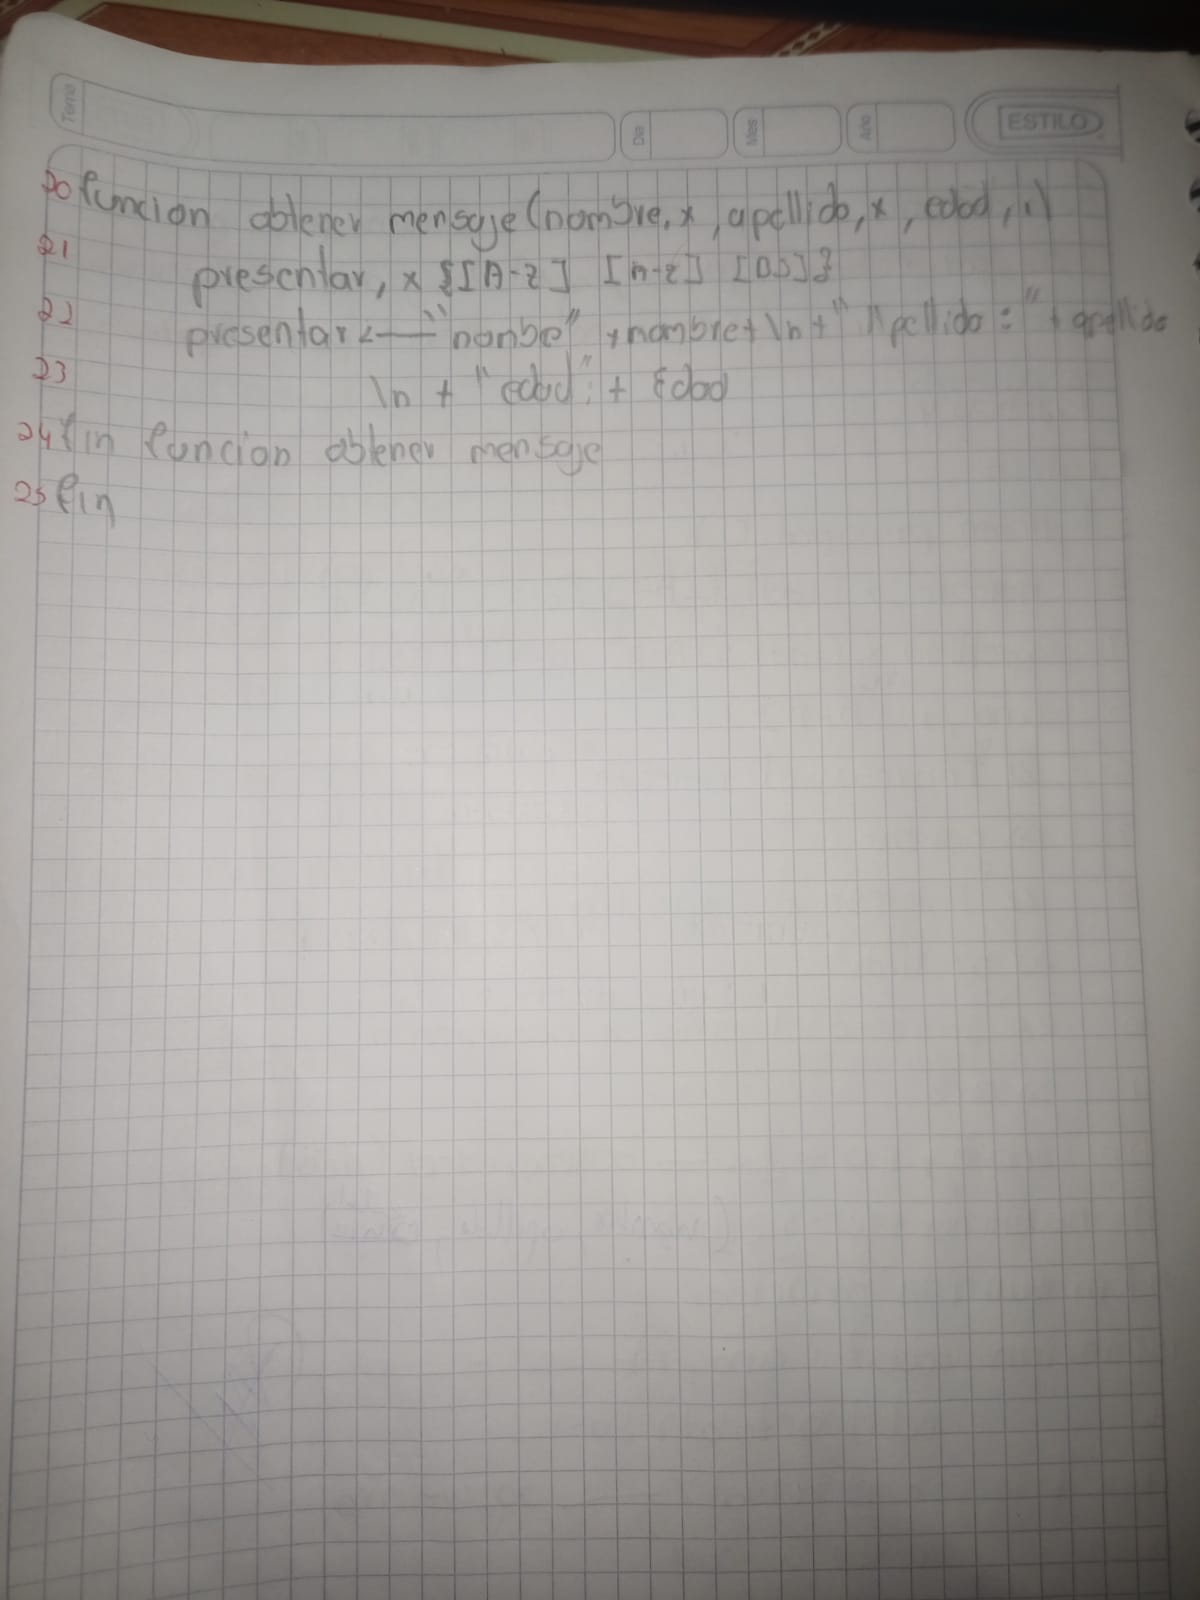 Tema Dia Mes Año ESTILO
20 funcion obtener mensaje (nombre, x, apellido, x, edad, 1)
21 presentar, x {[A-Z] [a-z] [0,9]}
22 presentar <— "nombe" + nombre + \n + "Apellido :" + apellido
23 \n + "edad": + Edad
24 fin funcion obtener mensaje
25 fin